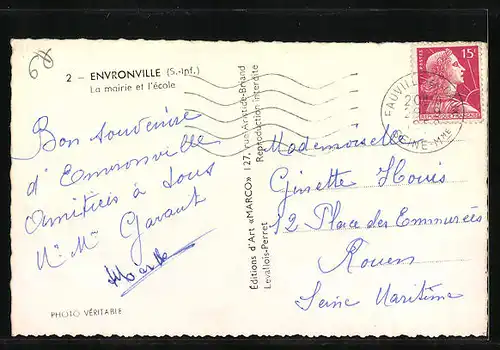 68
2 - ENVRONVILLE (S.-Inf.)
La mairie et l'école
Bon souvenir
d'Envronville
Amitiés à tous
Mr Mme Gavant
PHOTO VÉRITABLE
Éditions d'Art «MARCO» 127, rue Aristide-Briand
Levallois-Perret
Reproduction interdite
15F
FAUVILLE
SEINE-MME
Mademoiselle
Ginette Houis
12 Place des Emmurées
Rouen
Seine Maritime